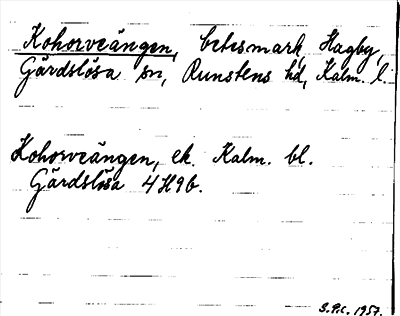 Kohorveängen, betesmark, Hagby,
Gärdslösa sn, Runstens hd, Kalm. l.
Kohorveängen, ek. Kalm. bl.
Gärdslösa 4H9b.
S.P.C. 1957.